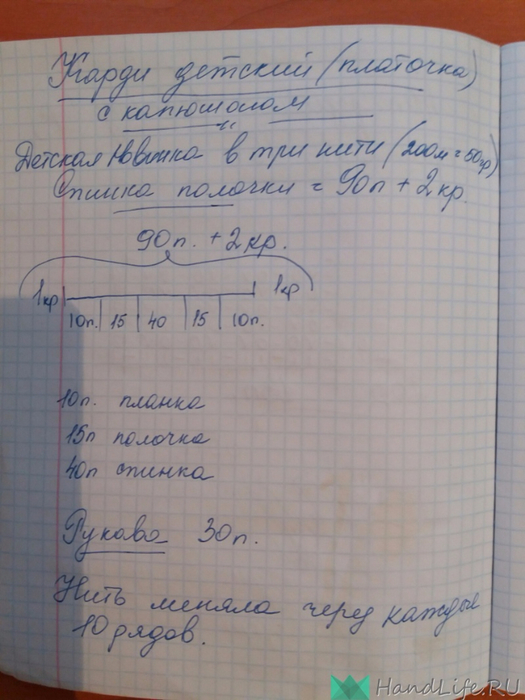 Карди детский (платочка)
с капюшоном
Детская Новинка в три нити (200м = 50гр)
Спинка полочки = 90п + 2кр.
90п. + 2кр.
1кр 1кр
10п. 15 40 15 10п.
10п. планка
15п полочка
40п спинка
Рукава 30п.
Нить меняла через каждые
10 рядов.
HandLife.RU